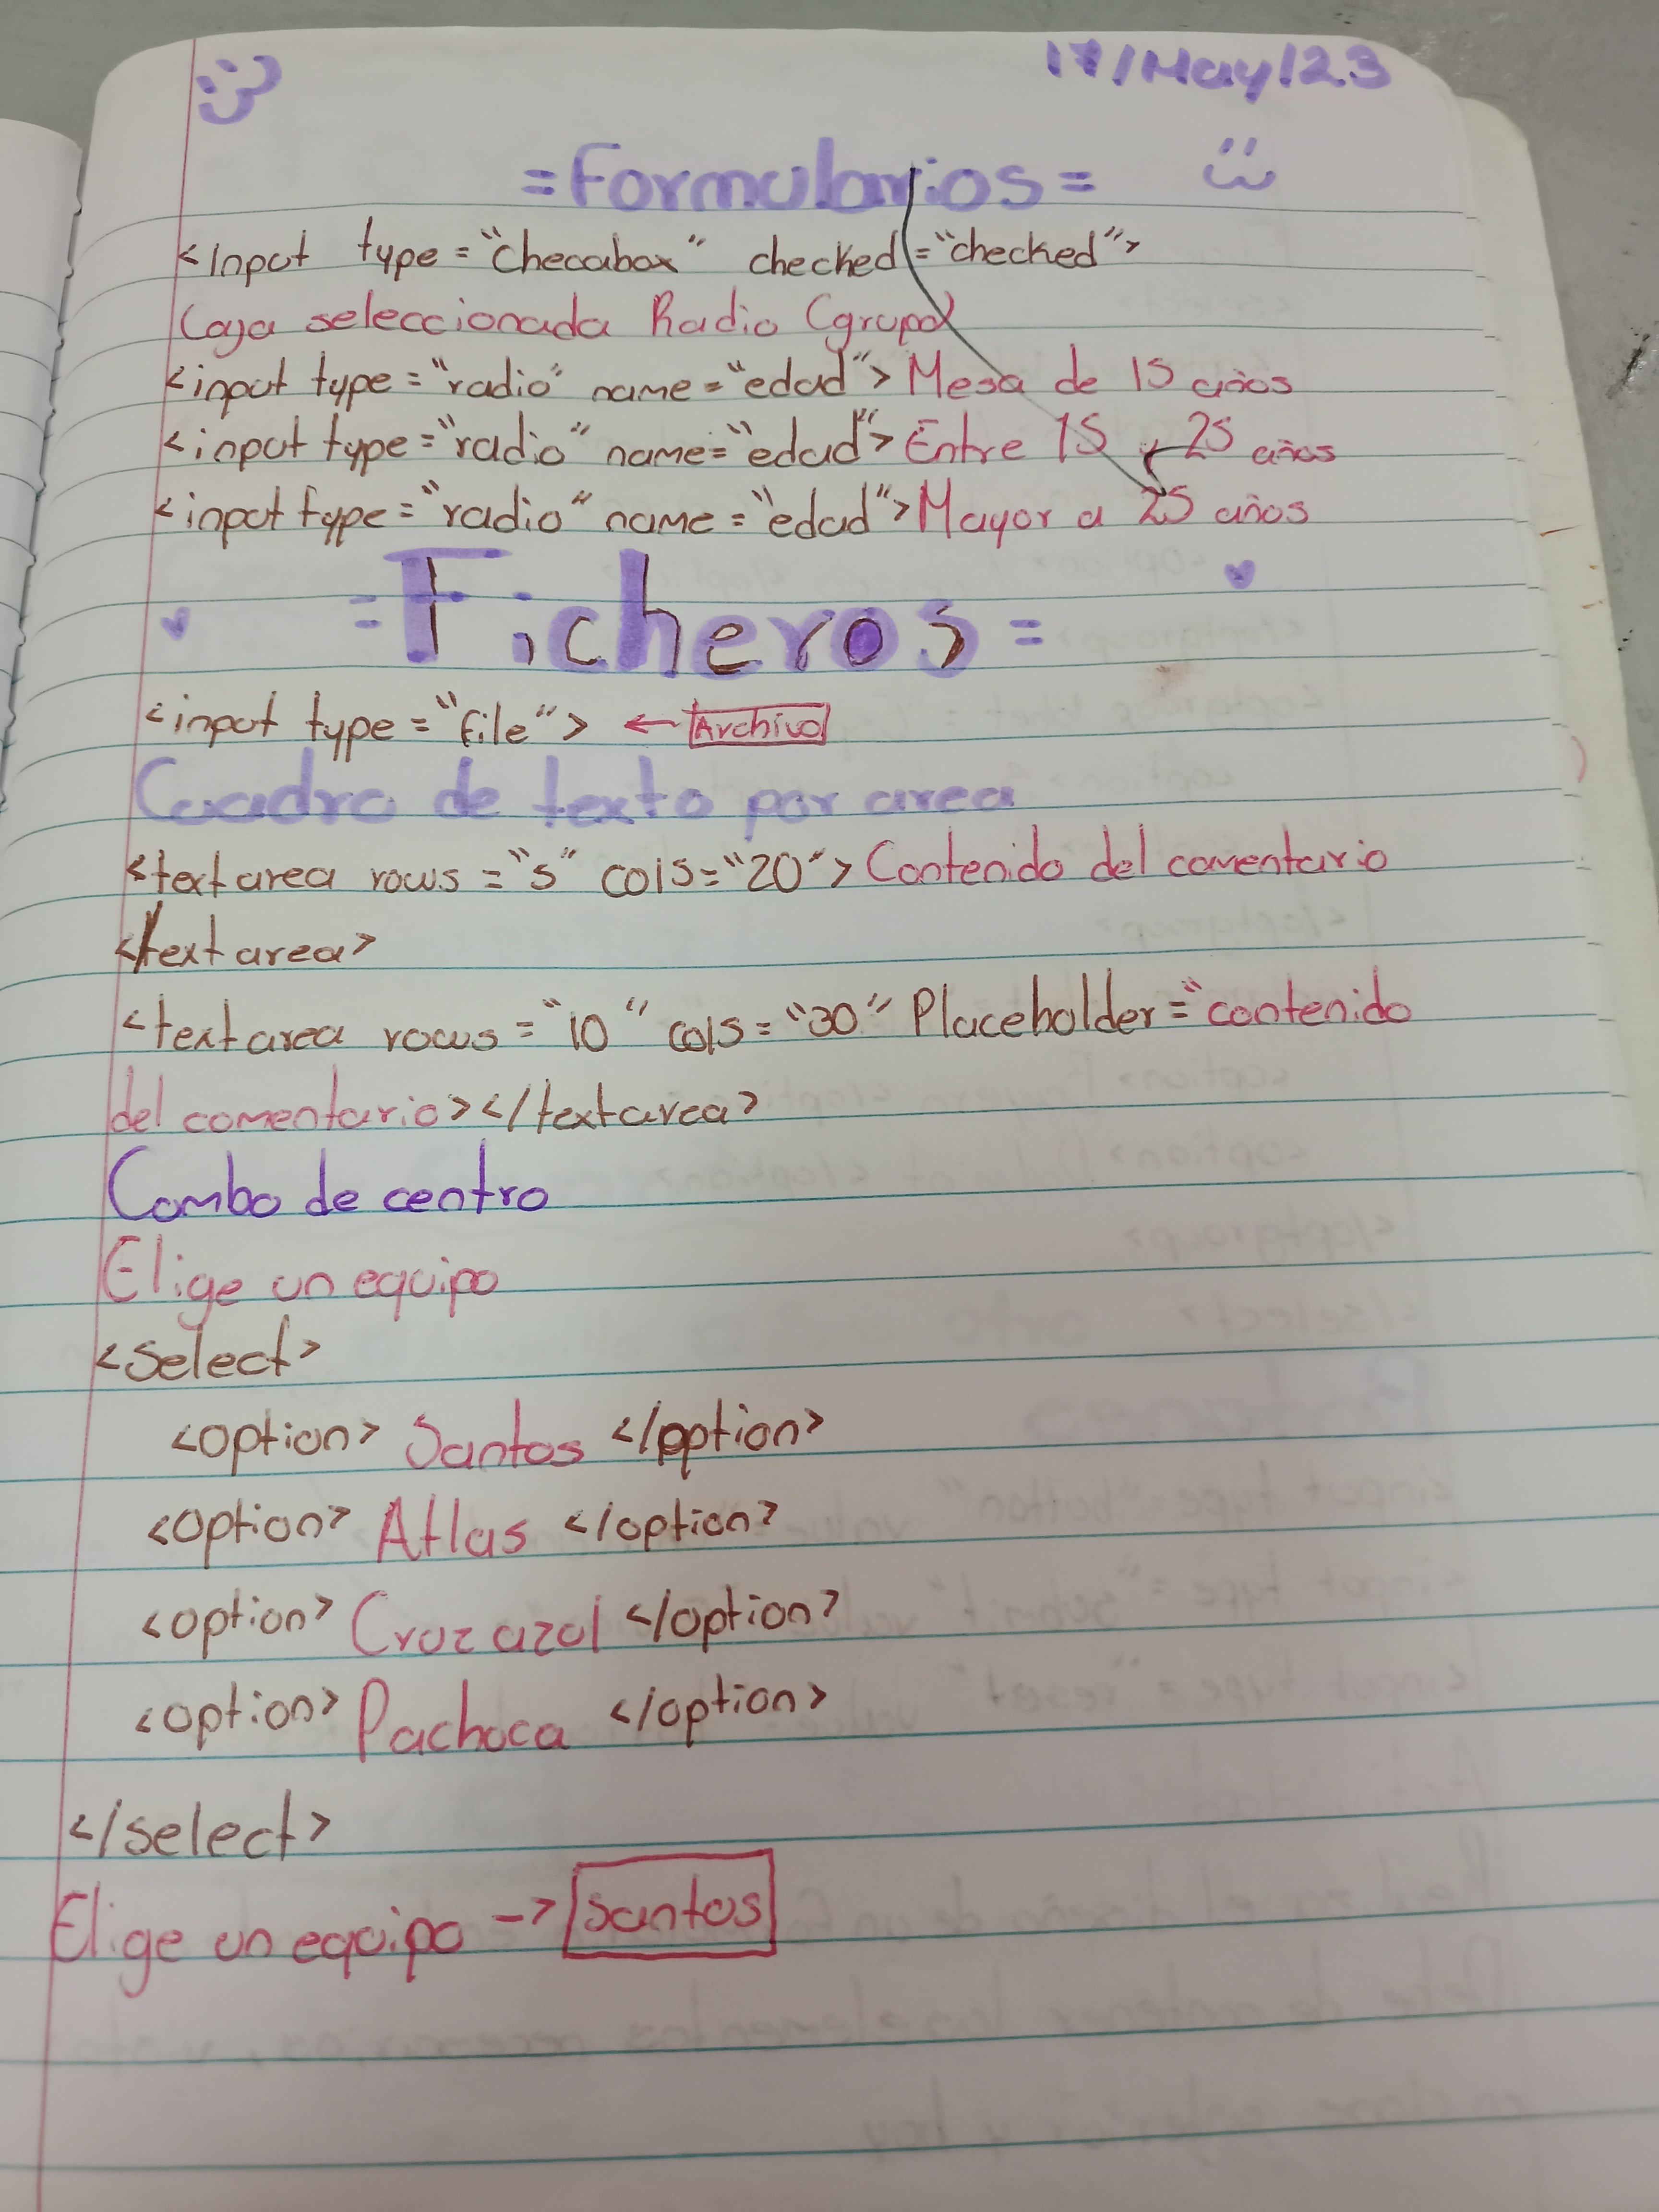 17/May/23
=Formularios=
<Input type="Checabox" checked="checked">
Caja seleccionada Radio (grupo)
<input type="radio" name="edad"> Mesa de 15 años
<input type="radio" name="edad"> Entre 15 y 25 años
<input type="radio" name="edad"> Mayor a 25 años
=Ficheros=
<input type="file"> ← Archivo
Cuadro de texto por area
<textarea rows="5" cols="20"> Contenido del comentario
</textarea>
<textarea rows="10" cols="30" Placeholder="contenido
del comentario></textarea>
Combo de centro
Elige un equipo
<select>
<option> Santos </option>
<option> Atlas </option>
<option> Cruz azul </option>
<option> Pachuca </option>
</select>
Elige un equipo -> Santos